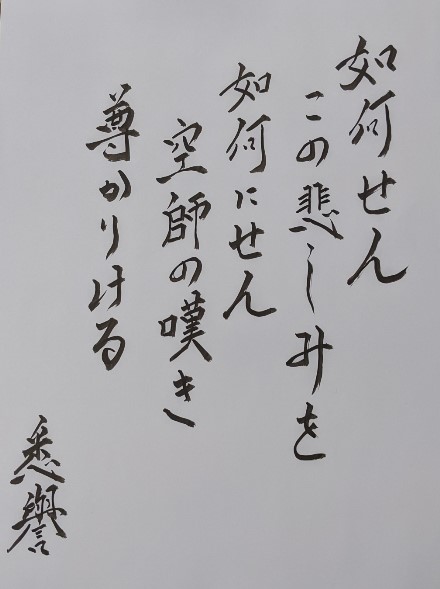 如何せん
この悲しみを
如何にせん
空師の嘆き
尊かりける
悉譽